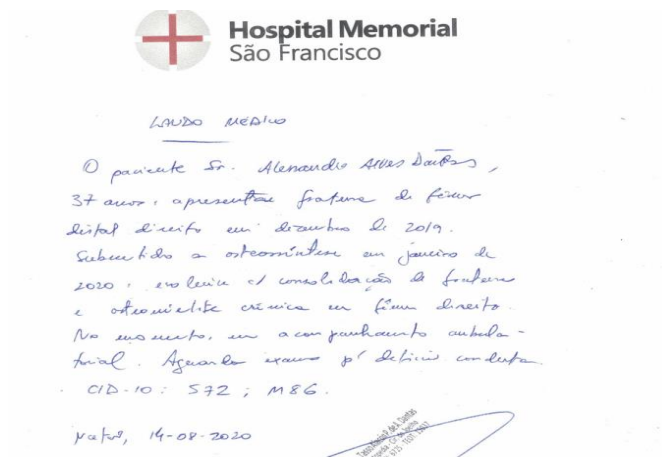 Hospital Memorial
São Francisco
LAUDO MÉDICO
O paciente Sr. Alexandre Alves Dantas,
37 anos, apresentou fratura de fêmur
distal direito em dezembro de 2019.
Submetido a osteossíntese em janeiro de
2020, evoluiu c/ consolidação de fratura
e osteomielite crônica em fêmur direito.
No momento, em acompanhamento ambula-
torial. Aguarda exames p/ definir conduta.
CID-10: S72; M86.
14-08-2020